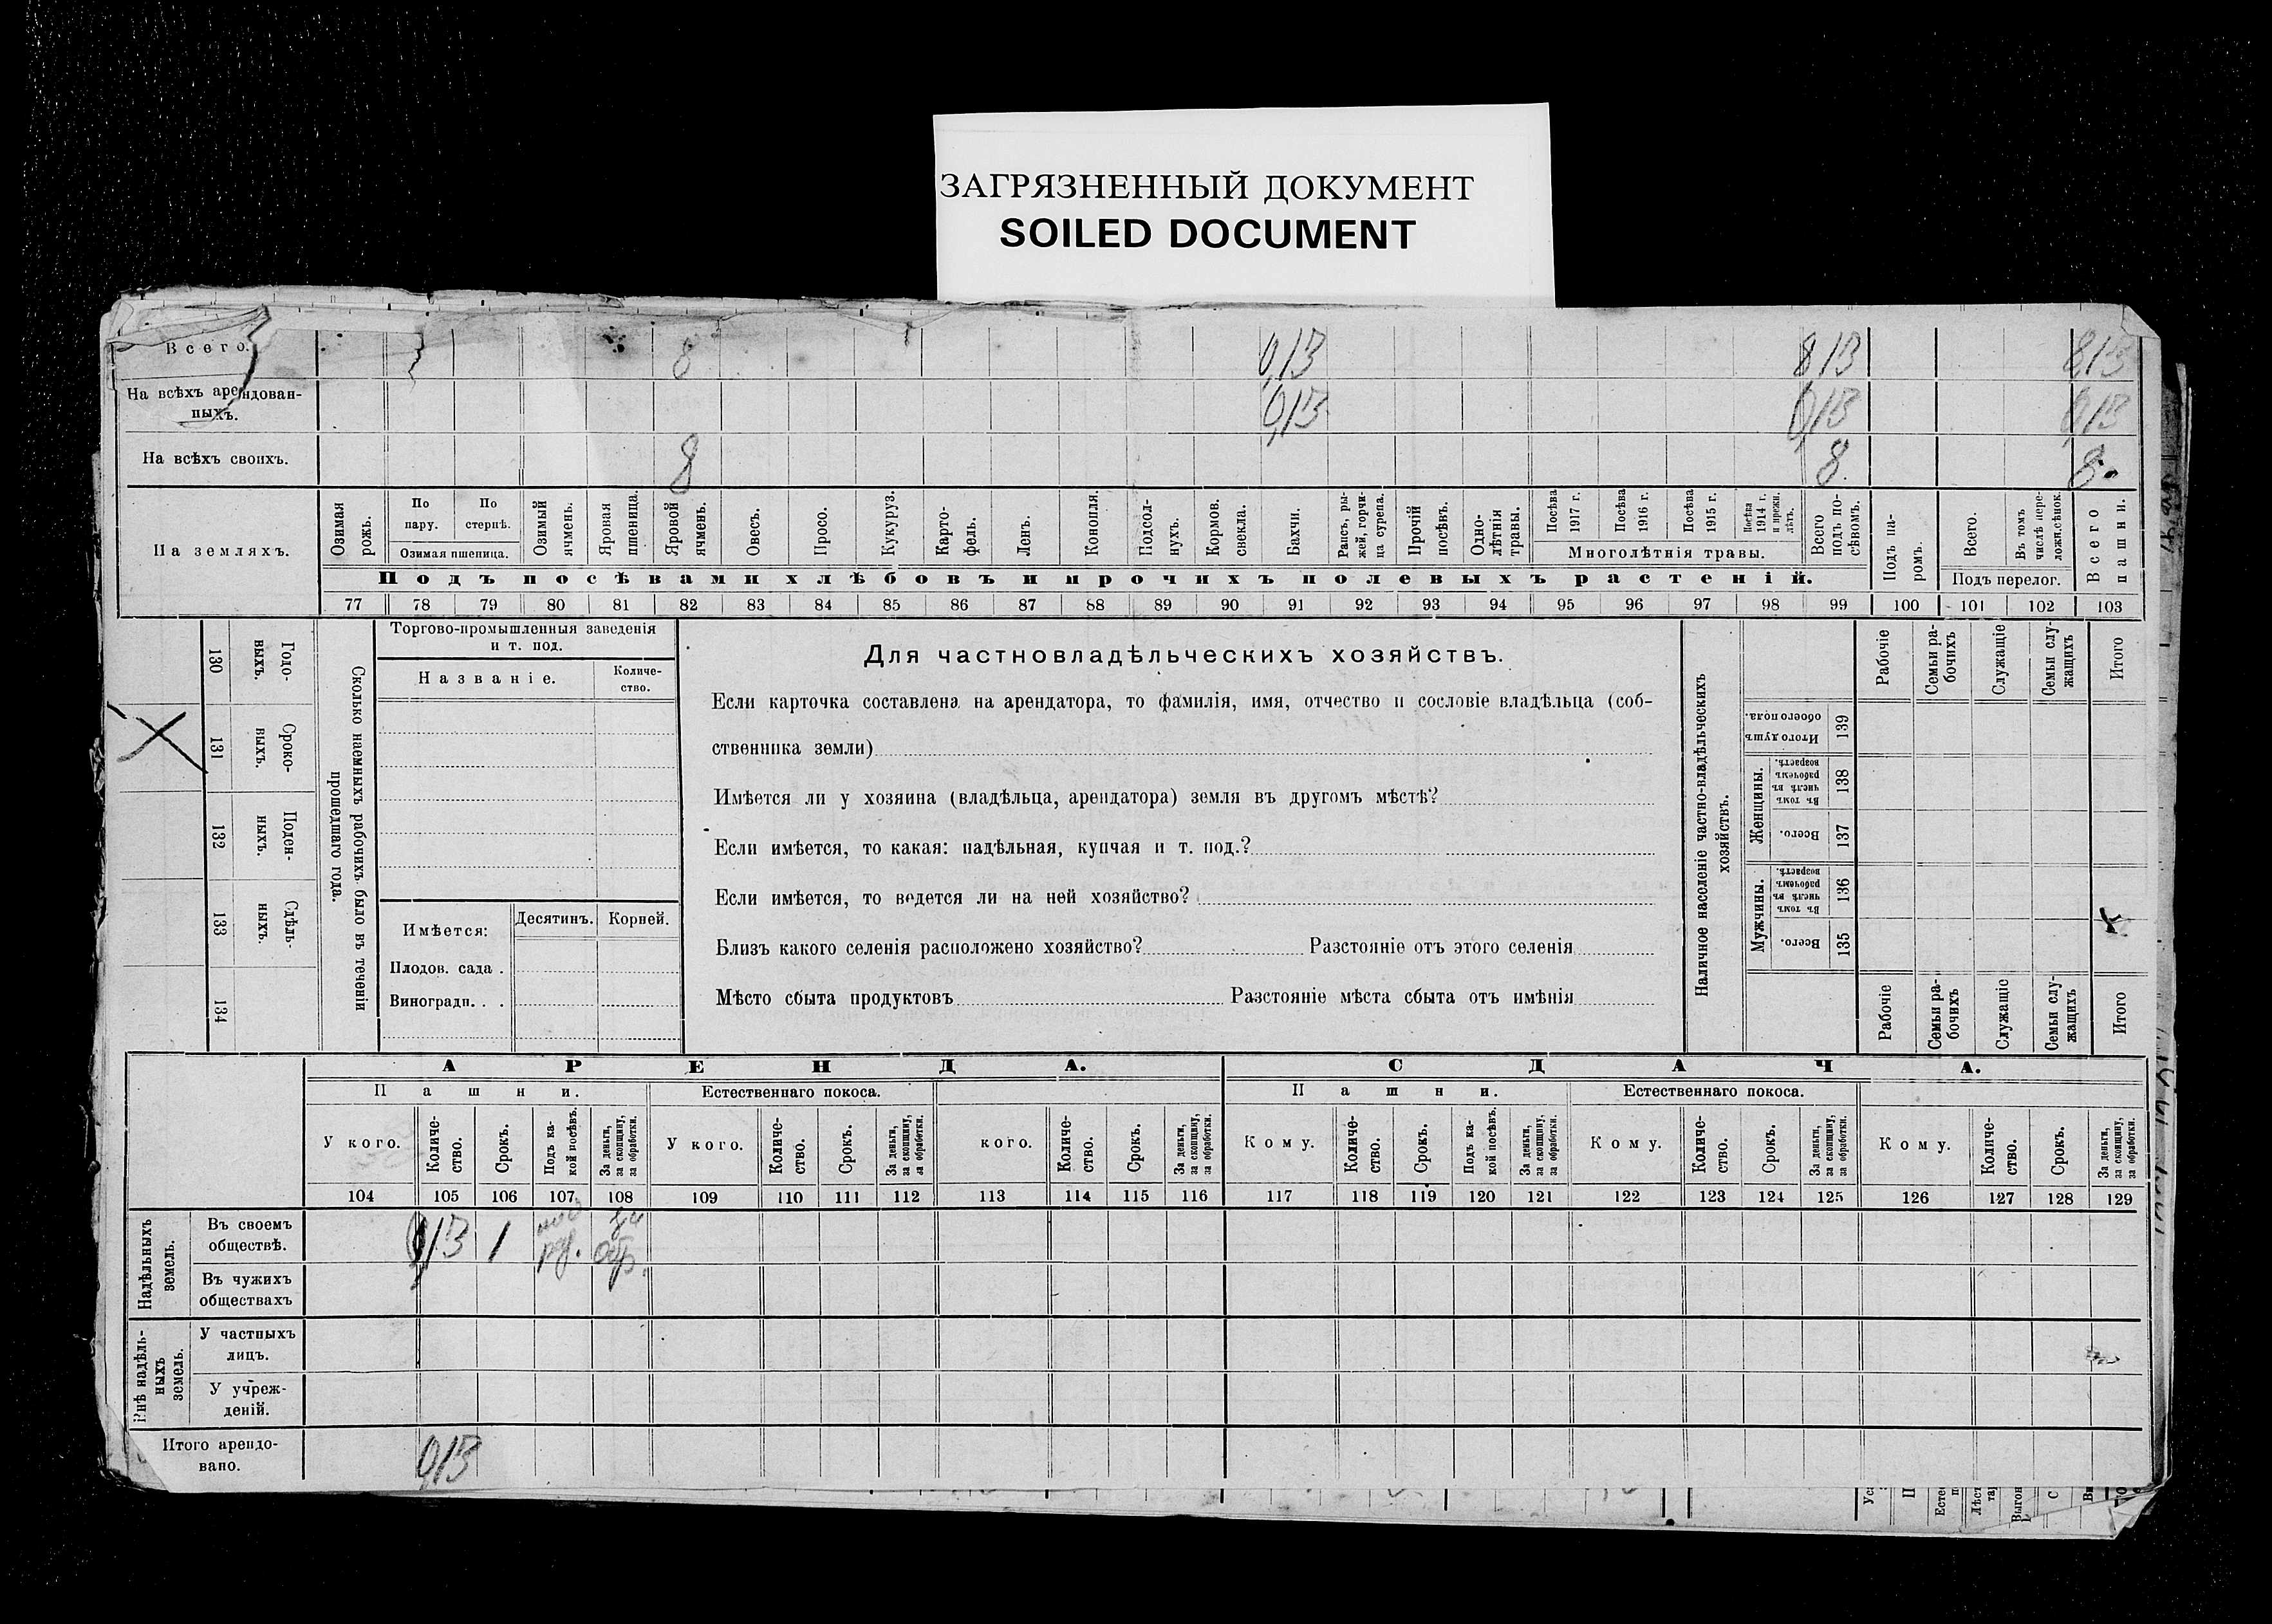 ЗАГРЯЗНЕННЫЙ ДОКУМЕНТ
SOILED DOCUMENT
Всего. 8 0,13 8 13 8,13
На всѣхъ арендован-
ныхъ. 0,13 0,13 0,13
На всѣхъ своихъ. 8 8. 8.
На земляхъ.
Озимая рожь.
По пару.
По стернѣ.
Озимая пшеница.
Озимый ячмень.
Яровая пшеница.
Яровой ячмень.
Овесъ.
Просо.
Кукуруз.
Карто-
фель.
Ленъ.
Конопля.
Подсол-
нухъ.
Кормов. свекла.
Бахчи.
Рапсъ, ры-
жей, горчи-
ца сурепа.
Прочій посѣвъ.
Одно-
лѣтнія травы.
Посѣва 1917 г.
Посѣва 1916 г.
Посѣва 1915 г.
Посѣва 1914 г. и прежн. лѣтъ.
Многолѣтнія травы.
Всего подъ по-
сѣвомъ.
Подъ па-
ромъ.
Всего.
Въ томъ числѣ пере-
ложн.сѣнок.
Подъ перелог.
Всего пашни.
Подъ посѣвами хлѣбовъ и прочихъ полевыхъ растеній.
77 78 79 80 81 82 83 84 85 86 87 88 89 90 91 92 93 94 95 96 97 98 99 100 101 102 103
130 Годо-
ныхъ.
131 Сроко-
ныхъ.
132 Поден-
ныхъ.
133 Сдѣль-
ныхъ.
134
Сколько наемныхъ рабочихъ было въ теченіи
прошедшаго года.
Торгово-промышленныя заведенія
и т. под.
Названіе. Количе-
ство.
Имѣется: Десятинъ. Корней.
Плодов. сада .
Виноградн. . .
Для частновладѣльческихъ хозяйствъ.
Если карточка составлена на арендатора, то фамилія, имя, отчество и сословіе владѣльца (соб-
ственника земли)
Имѣется ли у хозяина (владѣльца, арендатора) земля въ другомъ мѣстѣ?
Если имѣется, то какая: надѣльная, купчая и т. под.?
Если имѣется, то ведется ли на ней хозяйство?
Близъ какого селенія расположено хозяйство? Разстояніе отъ этого селенія
Мѣсто сбыта продуктовъ Разстояніе мѣста сбыта отъ имѣнія
Наличное населеніе частно-владѣльческихъ
хозяйствъ.
Рабочіе
Семьи ра-
бочихъ
Служащіе
Семьи слу-
жащихъ
Итого
Итого душъ обоего пола. 139
Женщины.
Въ томъ числѣ въ рабочемъ возрастѣ. 138
Всего. 137
Мужчины.
Въ томъ числѣ въ рабочемъ возрастѣ. 136
Всего. 135
Рабочіе
Семьи ра-
бочихъ
Служащіе
Семьи слу-
жащихъ
Итого
АРЕНДА. СДАЧА.
Пашни. Естественнаго покоса. Пашни. Естественнаго покоса.
У кого.
Количе-
ство.
Срокъ.
Подъ ка-
кой посѣвъ.
За деньги, за скопщину, за обработки.
У кого.
Количе-
ство.
Срокъ.
За деньги, за скопщину, за обработки.
кого.
Количе-
ство.
Срокъ.
За деньги, за скопщину, за обработки.
Кому.
Количе-
ство.
Срокъ.
Подъ ка-
кой посѣвъ.
За деньги, за скопщину, за обработки.
Кому.
Количе-
ство.
Срокъ.
За деньги, за скопщину, за обработки.
Кому.
Количе-
ство.
Срокъ.
За деньги, за скопщину, за обработки.
104 105 106 107 108 109 110 111 112 113 114 115 116 117 118 119 120 121 122 123 124 125 126 127 128 129
Надѣльныхъ земель.
Въ своемъ
обществѣ. 0,13 1 за обр.
Въ чужихъ
обществахъ
Внѣ надѣль-
ныхъ земель.
У частныхъ
лицъ.
У учреж-
деній.
Итого арендо-
вано. 0,13